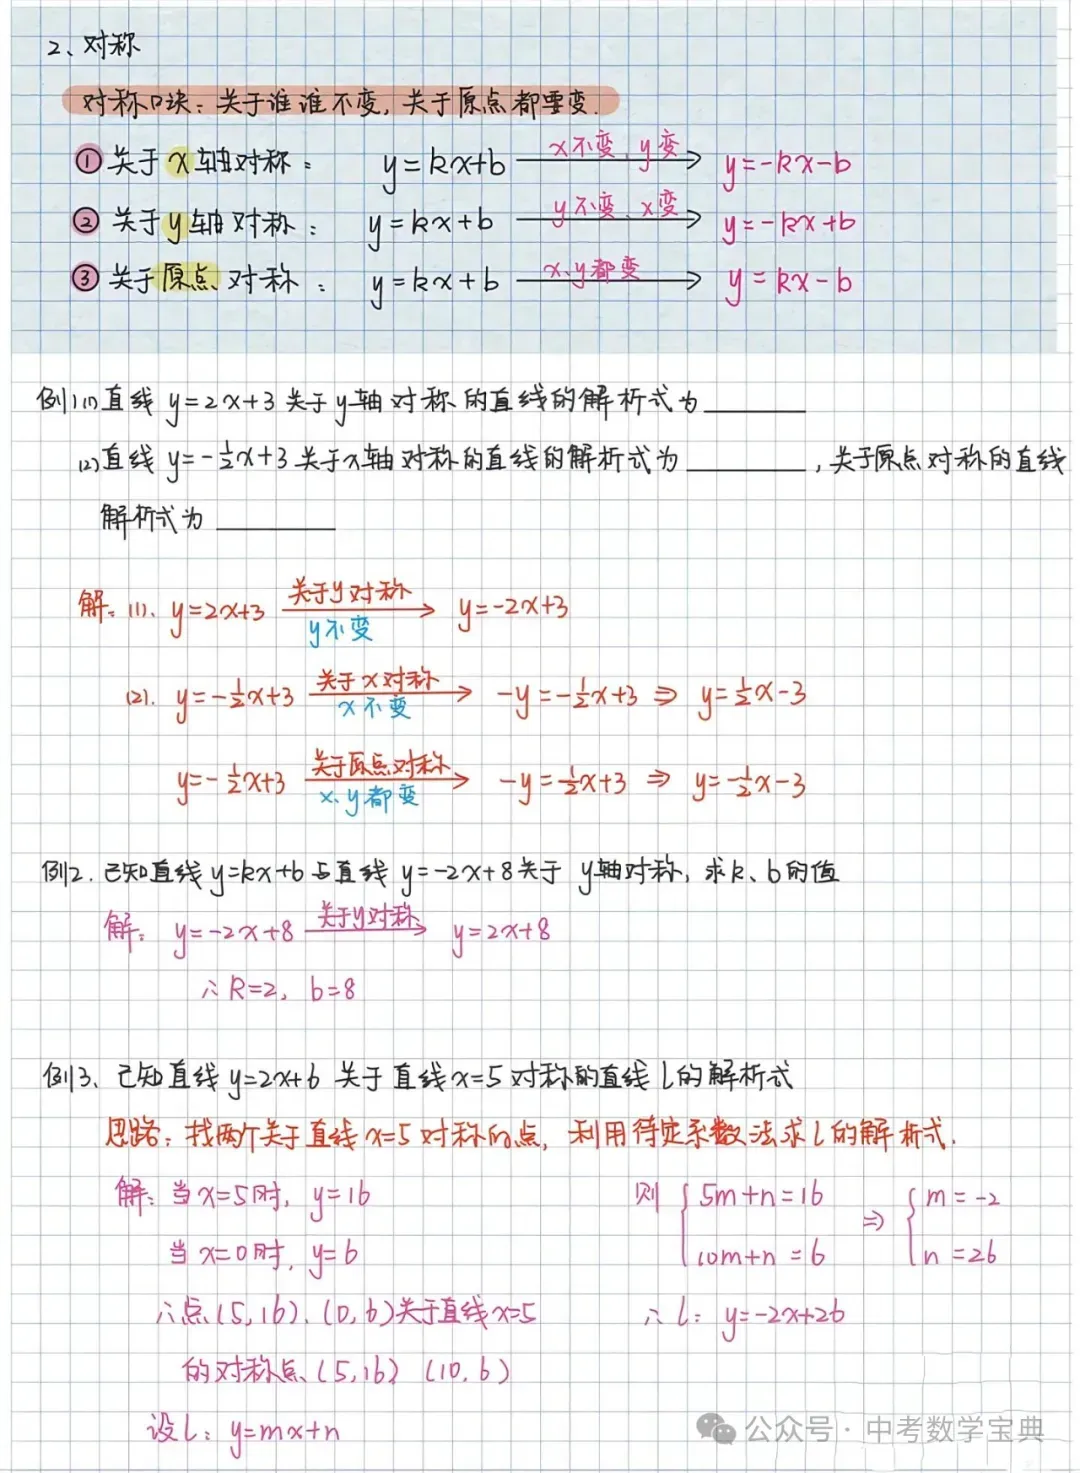 2、对称
对称口诀：关于谁谁不变，关于原点都要变.
① 关于x轴对称： y=kx+b x不变、y变 y=-kx-b
② 关于y轴对称： y=kx+b y不变、x变 y=-kx+b
③ 关于原点对称： y=kx+b x、y都变 y=kx-b
例1 (1) 直线 y=2x+3 关于y轴对称的直线的解析式为______
(2) 直线 y=-½x+3 关于x轴对称的直线的解析式为______，关于原点对称的直线
解析式为______
解：(1). y=2x+3 关于y对称 y不变 y=-2x+3
(2). y=-½x+3 关于x对称 x不变 -y=-½x+3 ⇒ y=½x-3
y=-½x+3 关于原点对称 x、y都变 -y=½x+3 ⇒ y=-½x-3
例2. 已知直线y=kx+b与直线 y=-2x+8关于 y轴对称，求k、b的值
解： y=-2x+8 关于y对称 y=2x+8
∴ k=2, b=8
例3、已知直线y=2x+6 关于直线x=5对称的直线l的解析式
思路：找两个关于直线x=5对称的点，利用待定系数法求l的解析式.
解：当x=5时，y=16
当x=0时，y=6
∴点(5,16)、(0,6)关于直线x=5
的对称点(5,16) (10,6)
设l：y=mx+n
则 { 5m+n=16 ⇒ { m=-2
10m+n=6 n=26
∴ l：y=-2x+26
公众号 · 中考数学宝典